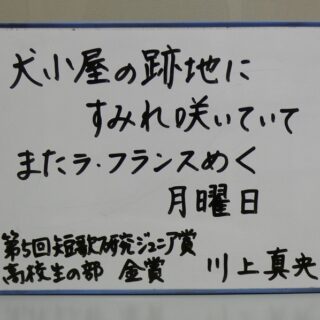 犬小屋の跡地に
すみれ咲いていて
またラ・フランスめく
月曜日
第5回短歌研究ジュニア賞
高校生の部 金賞 川上真央